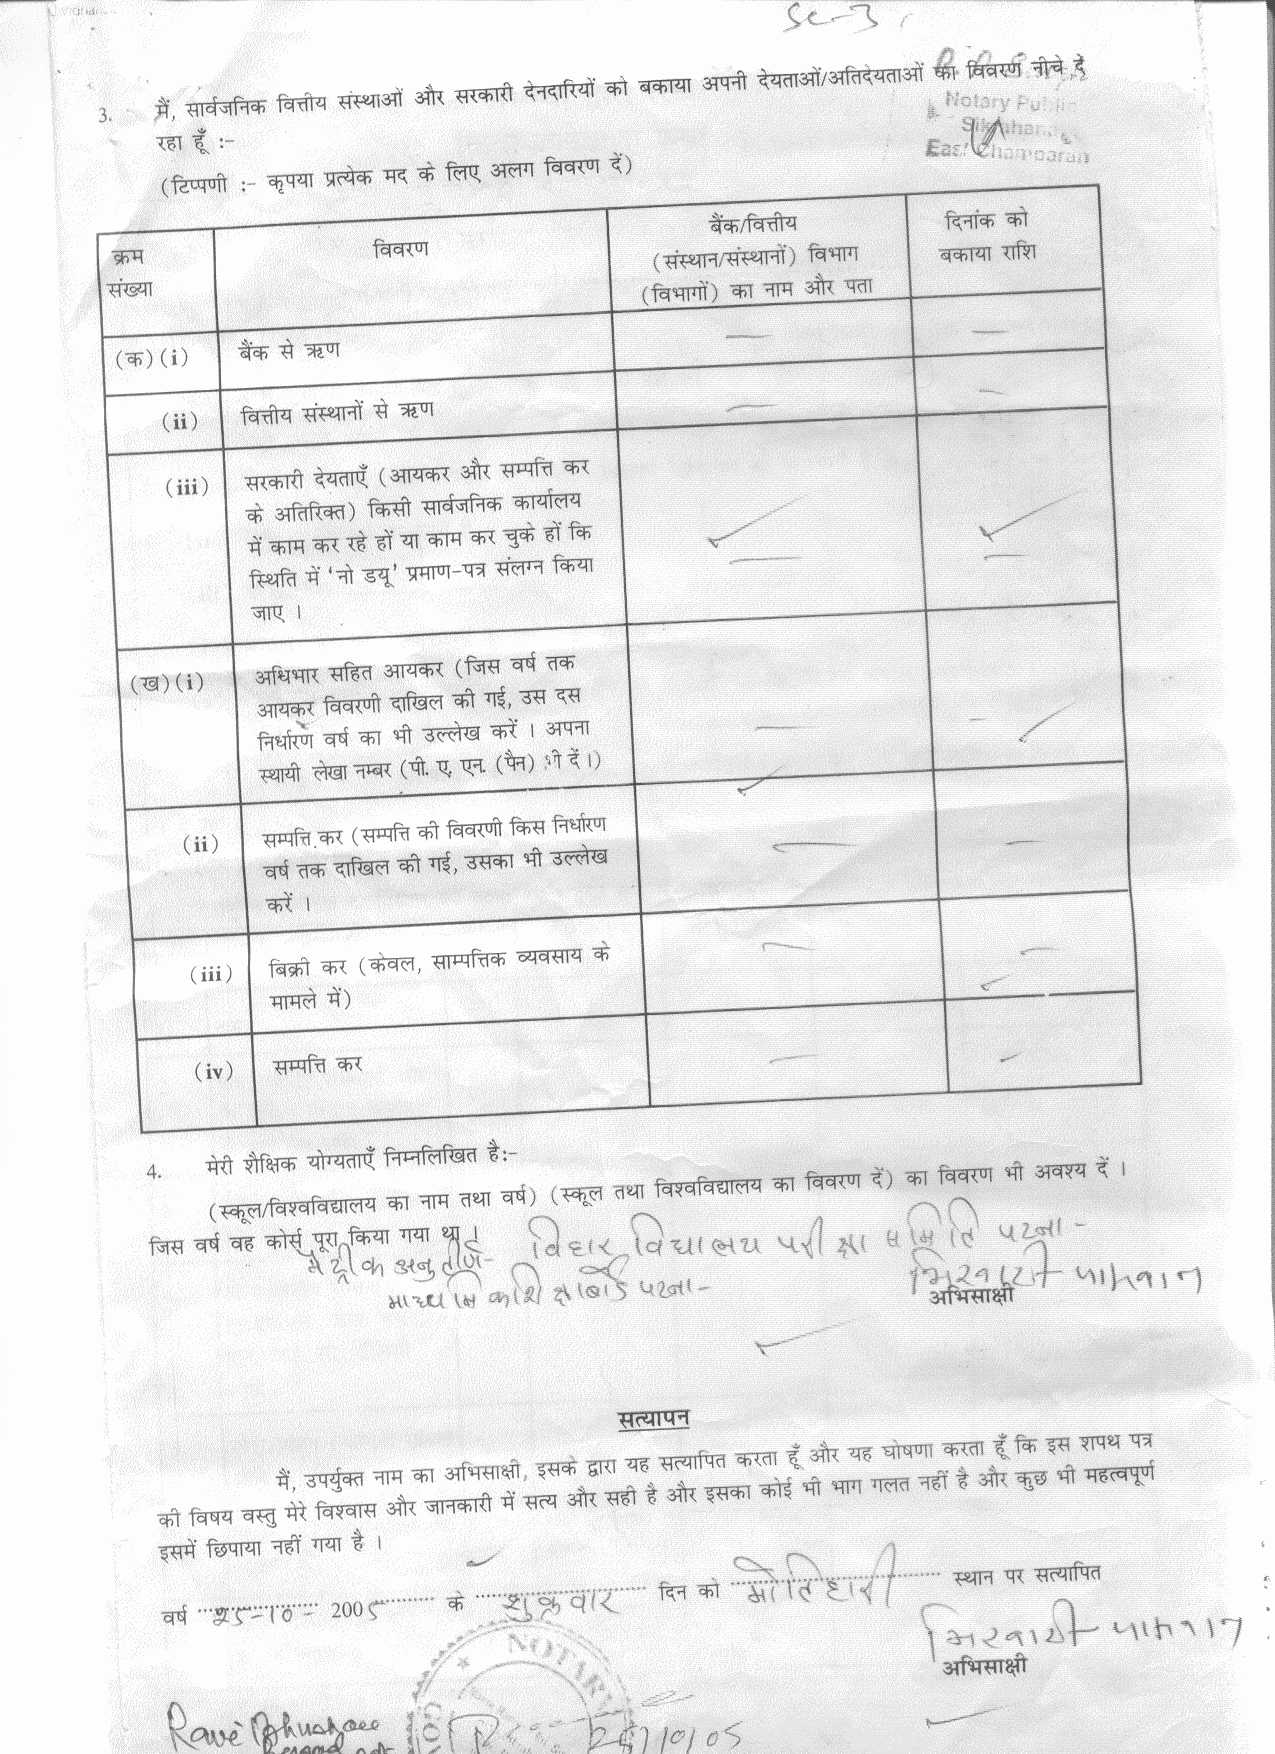 Sc-3
3. मैं, सार्वजनिक वित्तीय संस्थाओं और सरकारी देनदारियों को बकाया अपनी देयताओं/अतिदेयताओं का विवरण नीचे दे
Notary Public
रहा हूँ :-
East Champaran
(टिप्पणी :- कृपया प्रत्येक मद के लिए अलग विवरण दें)
क्रम संख्या
विवरण
बैंक/वित्तीय
(संस्थान/संस्थानों) विभाग
(विभागों) का नाम और पता
दिनांक को
बकाया राशि
(क) (i) बैंक से ऋण — —
(ii) वित्तीय संस्थानों से ऋण — —
(iii) सरकारी देयताएँ (आयकर और सम्पत्ति कर
के अतिरिक्त) किसी सार्वजनिक कार्यालय
में काम कर रहे हों या काम कर चुके हों कि
स्थिति में 'नो डयू' प्रमाण-पत्र संलग्न किया — —
जाए ।
(ख) (i) अधिभार सहित आयकर (जिस वर्ष तक
आयकर विवरणी दाखिल की गई, उस दस
निर्धारण वर्ष का भी उल्लेख करें । अपना — —
स्थायी लेखा नम्बर (पी. ए. एन. (पैन) भी दें।)
(ii) सम्पत्ति कर (सम्पत्ति की विवरणी किस निर्धारण — —
वर्ष तक दाखिल की गई, उसका भी उल्लेख
करें ।
(iii) बिक्री कर (केवल, साम्पत्तिक व्यवसाय के — —
मामले में)
(iv) सम्पत्ति कर — —
4. मेरी शैक्षिक योग्यताएँ निम्नलिखित है:-
(स्कूल/विश्वविद्यालय का नाम तथा वर्ष) (स्कूल तथा विश्वविद्यालय का विवरण दें) का विवरण भी अवश्य दें ।
जिस वर्ष वह कोर्स पूरा किया गया था ।
मैट्रीक अनुतीर्ण- विहार विद्यालय परीक्षा समिति पटना-
माध्यमिक शिक्षा बोर्ड पटना-
अभिसाक्षी
सत्यापन
मैं, उपर्युक्त नाम का अभिसाक्षी, इसके द्वारा यह सत्यापित करता हूँ और यह घोषणा करता हूँ कि इस शपथ पत्र
की विषय वस्तु मेरे विश्वास और जानकारी में सत्य और सही है और इसका कोई भी भाग गलत नहीं है और कुछ भी महत्वपूर्ण
इसमें छिपाया नहीं गया है ।
वर्ष 25-10- 2005 के शुक्रवार दिन को मोतिहारी स्थान पर सत्यापित
अभिसाक्षी
NOTARY
25/10/05